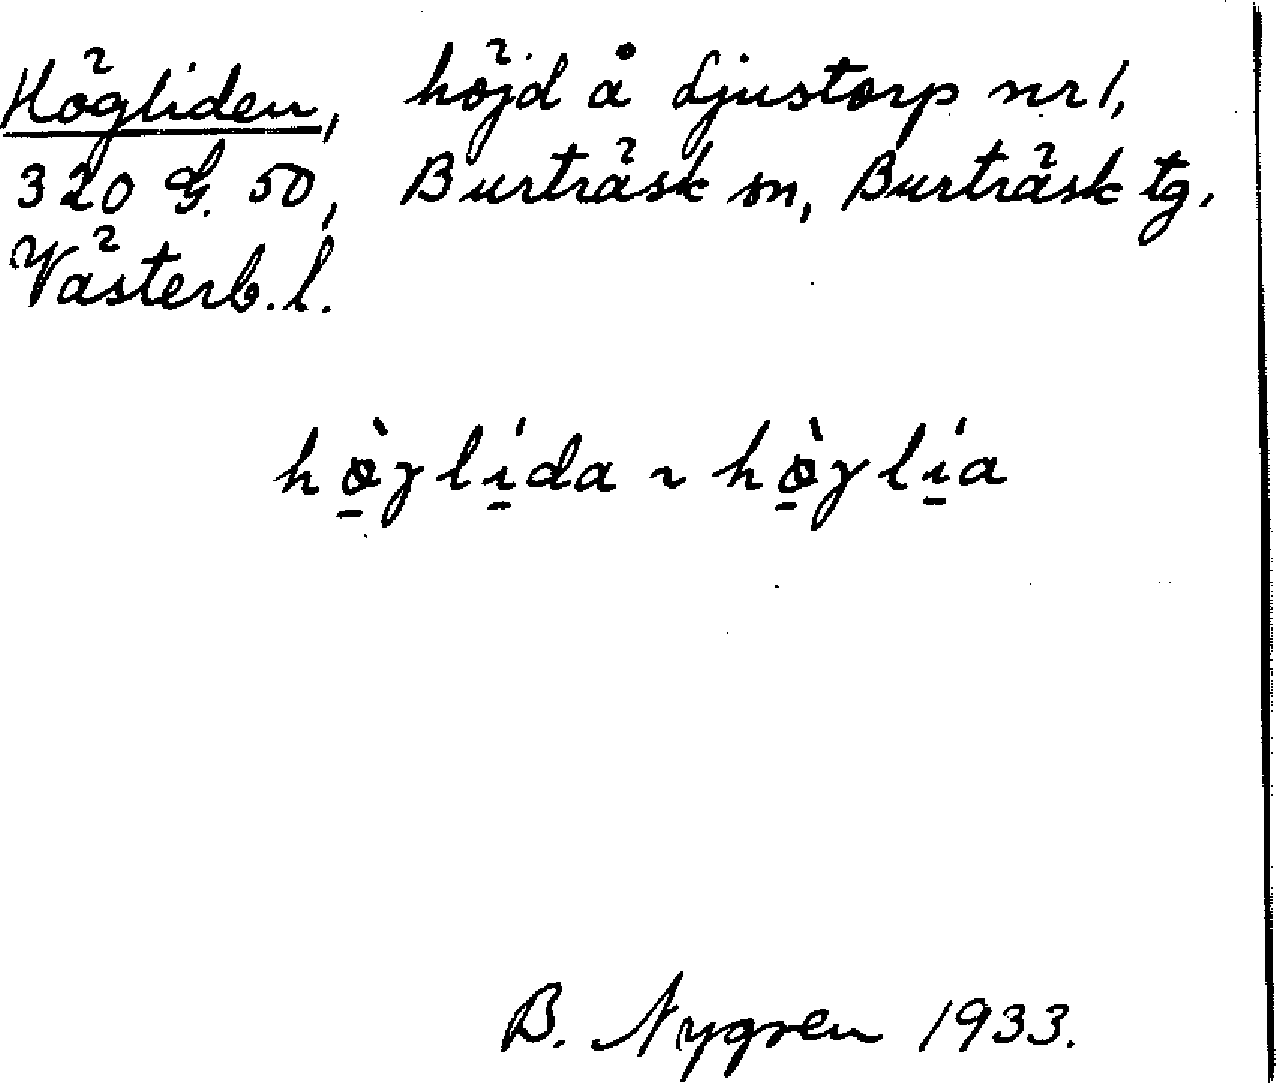 Högliden, höjd å Ljustorp nr 1,
320 G. 50, Burträsk sn, Burträsk tg.
Västerb. l.
hø̱̀γlí̱da ~ hø̱̀γlí̱a
B. Nygren 1933.